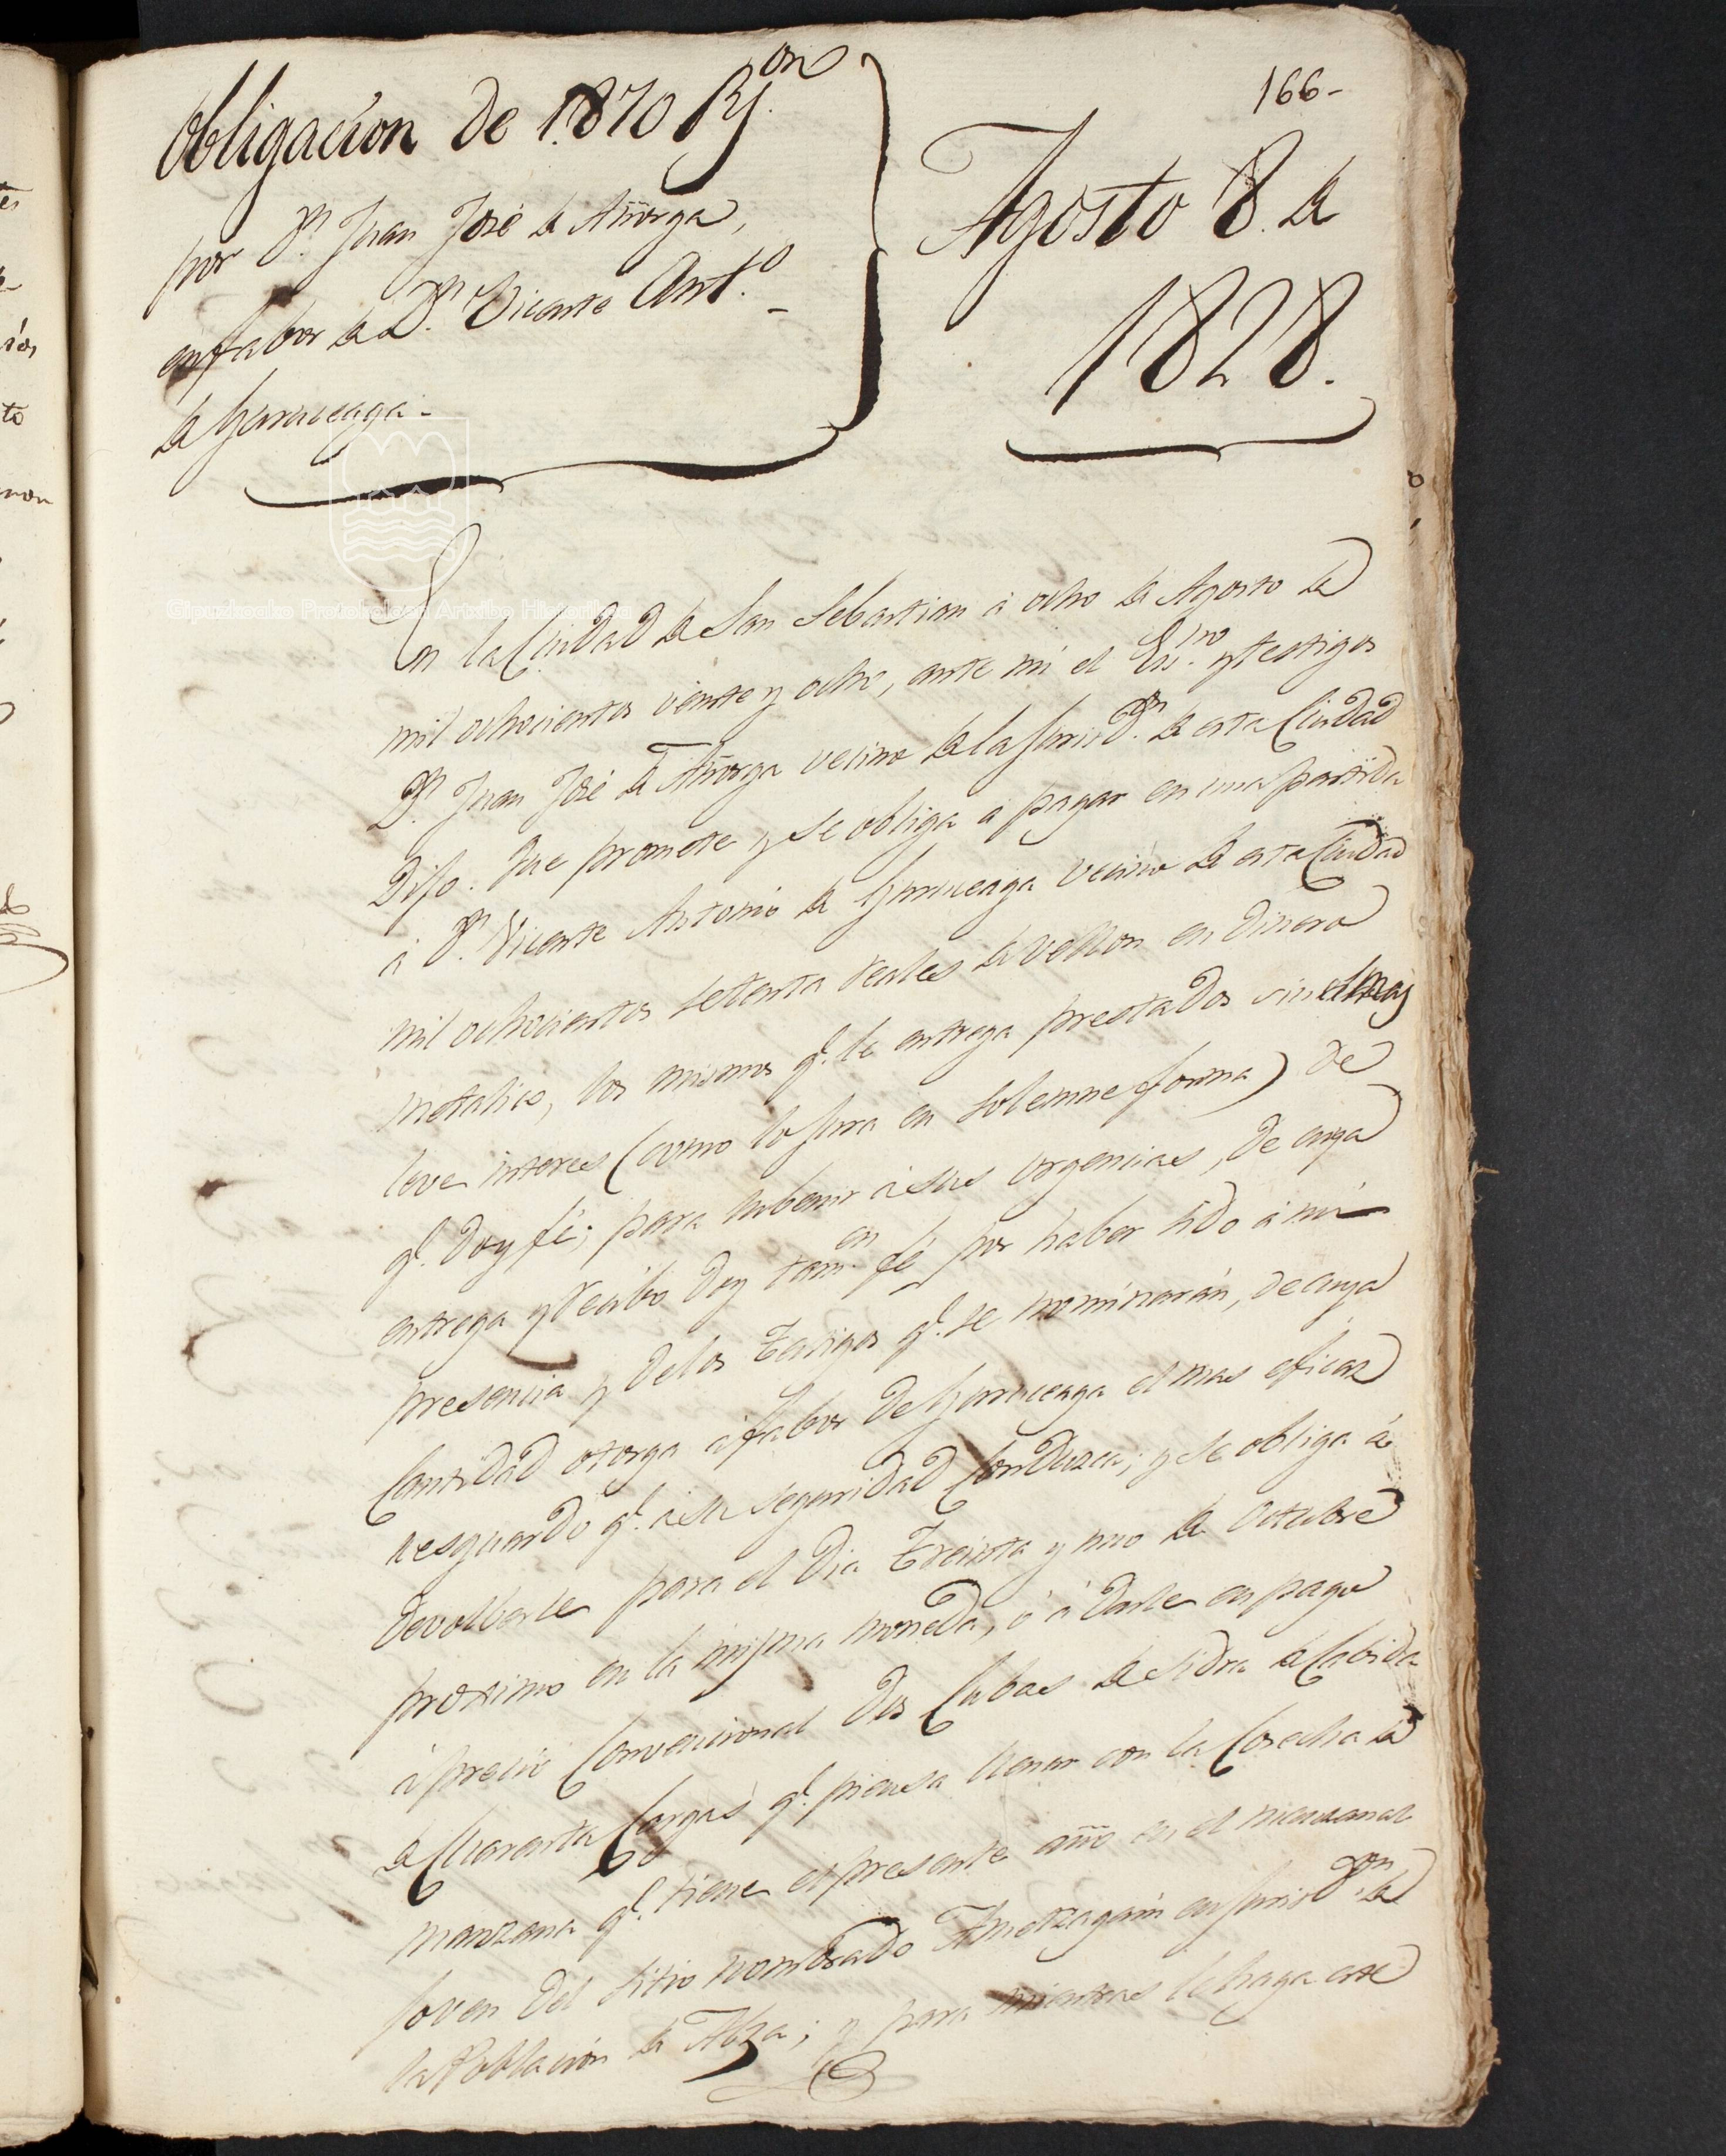 166-
Obligacion de 1.870 Rs. on
por Dn. Juan José de Añorga,
en fabor de Dn. Vicente Ant.o -
de Yarruceaga -
Agosto 8. de
1828.
Gipuzkoako Protokoloen Artxibo Historikoa
En la Ciudad de San Sebastian á ocho de Agosto de
mil ochocientos veinte y ocho, ante mi el Esc.no y testigos
Dn. Juan José de Añorga vecino de la Jurisd.on de esta Ciudad
Dijo. Que promete y se obliga á pagar en una partida
á Dn. Vicente Antonio de Yarruceaga vecino de esta Ciudad
mil ochocientos setenta reales de vellon en dinero
metalico, los mismos q.e le entrega prestados sin el mas
leve interes (como lo jura en solemne forma) de
q.e doy fé; para subenir á sus urgencias, de cuya
entrega y recibo doy tam.en fé por haber sido á mi
presencia y de los Testigos q.e se nominarán, de cuya
Cantidad otorga á fabor de Yarruceaga el mas eficaz
resguardo q.e á su seguridad Conduzca; y se obliga á
devolberle para el dia Treinta y uno de Octubre
proximo en la misma moneda, ó á darle en pago
á precio Convencional dos Cubas de sidra de Cabida
de Cuarenta Cargas q.e piensa llenar con la Cosecha de
manzana q.e tiene el presente año en el manzanal
joven del sitio nombrado Ametzagain en Jurisd.on de
la Poblacion de Alza; y para mientras le haga este